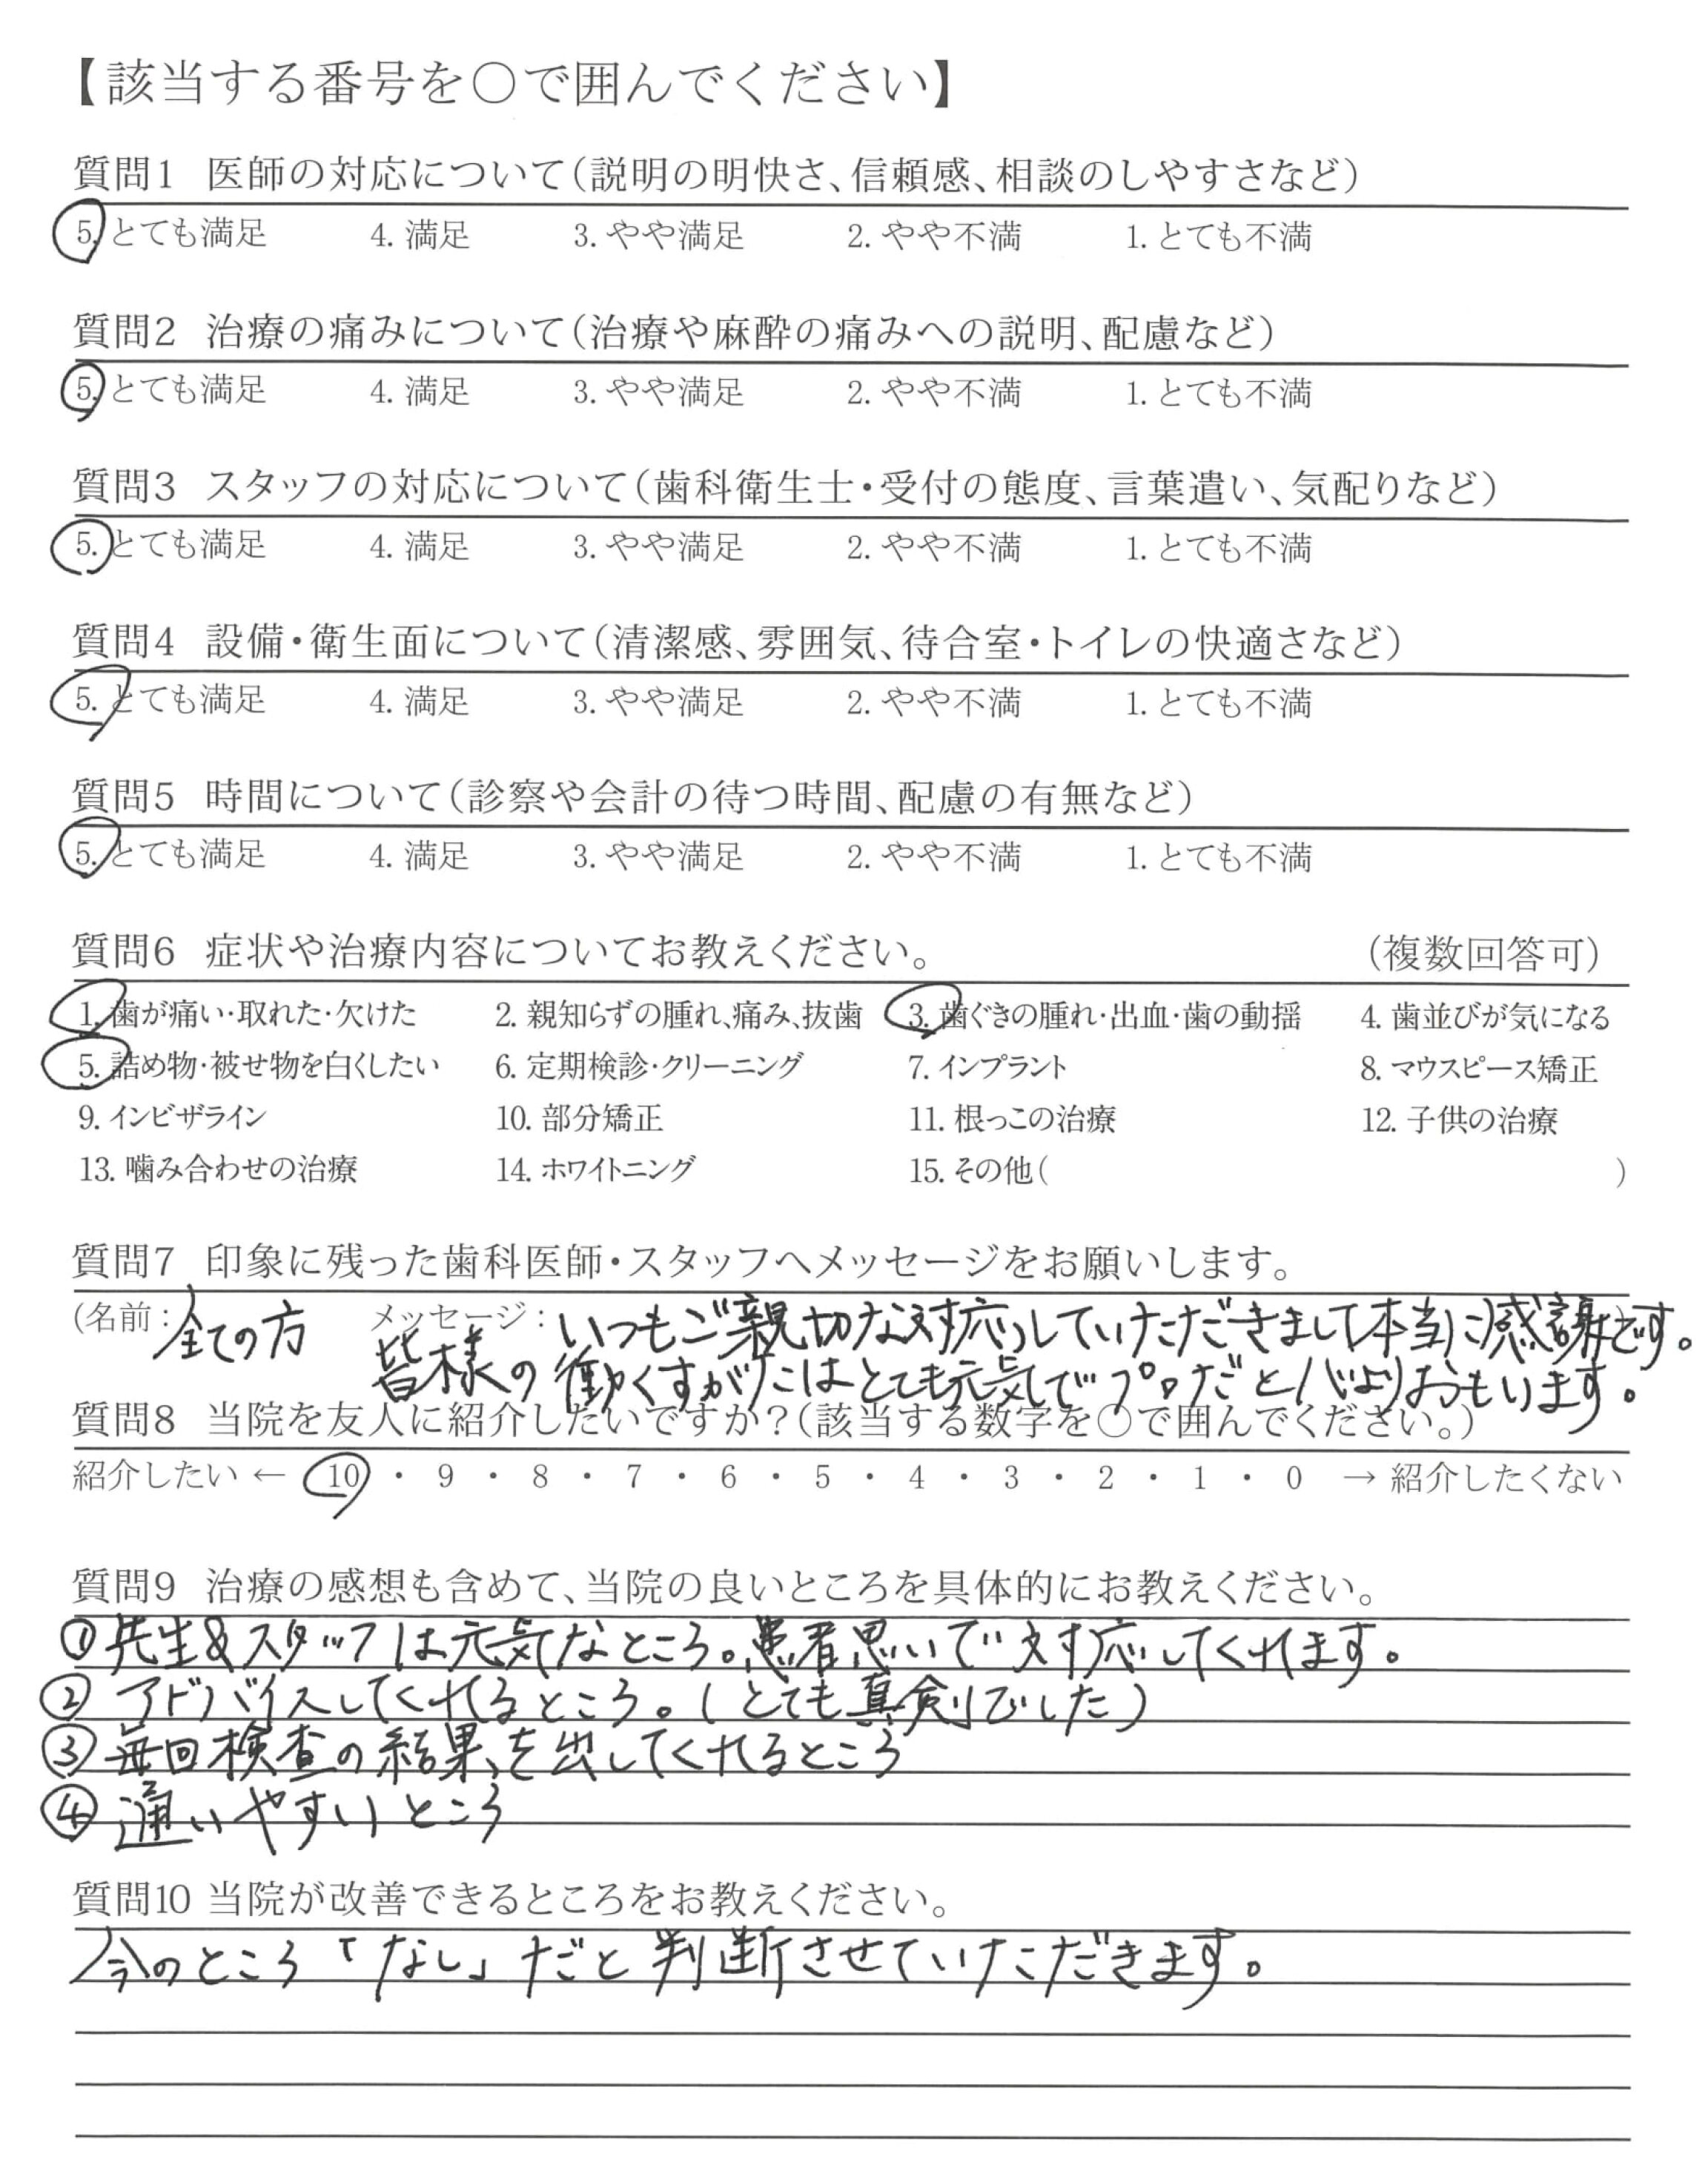 【該当する番号を○で囲んでください】
質問1 医師の対応について(説明の明快さ、信頼感、相談のしやすさなど)
5. とても満足 4. 満足 3. やや満足 2. やや不満 1. とても不満
質問2 治療の痛みについて(治療や麻酔の痛みへの説明、配慮など)
5. とても満足 4. 満足 3. やや満足 2. やや不満 1. とても不満
質問3 スタッフの対応について(歯科衛生士・受付の態度、言葉遣い、気配りなど)
5. とても満足 4. 満足 3. やや満足 2. やや不満 1. とても不満
質問4 設備・衛生面について(清潔感、雰囲気、待合室・トイレの快適さなど)
5. とても満足 4. 満足 3. やや満足 2. やや不満 1. とても不満
質問5 時間について(診察や会計の待つ時間、配慮の有無など)
5. とても満足 4. 満足 3. やや満足 2. やや不満 1. とても不満
質問6 症状や治療内容についてお教えください。 (複数回答可)
1. 歯が痛い・取れた・欠けた 2. 親知らずの腫れ、痛み、抜歯 3. 歯ぐきの腫れ・出血・歯の動揺 4. 歯並びが気になる
5. 詰め物・被せ物を白くしたい 6. 定期検診・クリーニング 7. インプラント 8. マウスピース矯正
9. インビザライン 10. 部分矯正 11. 根っこの治療 12. 子供の治療
13. 噛み合わせの治療 14. ホワイトニング 15. その他( )
質問7 印象に残った歯科医師・スタッフへメッセージをお願いします。
(名前: 全ての方 メッセージ: いつもご親切な対応していただきまして本当に感謝です。
皆様の働くすがたはとても元気でプロだと心よりおもいます。
質問8 当院を友人に紹介したいですか?(該当する数字を○で囲んでください。)
紹介したい ← 10 ・ 9 ・ 8 ・ 7 ・ 6 ・ 5 ・ 4 ・ 3 ・ 2 ・ 1 ・ 0 → 紹介したくない
質問9 治療の感想も含めて、当院の良いところを具体的にお教えください。
①先生&スタッフは元気なところ。患者思いで対応してくれます。
②アドバイスしてくれるところ。(とても真剣でした)
③毎回検査の結果を出してくれるところ
④通いやすいところ
質問10 当院が改善できるところをお教えください。
今のところ「なし」だと判断させていただきます。